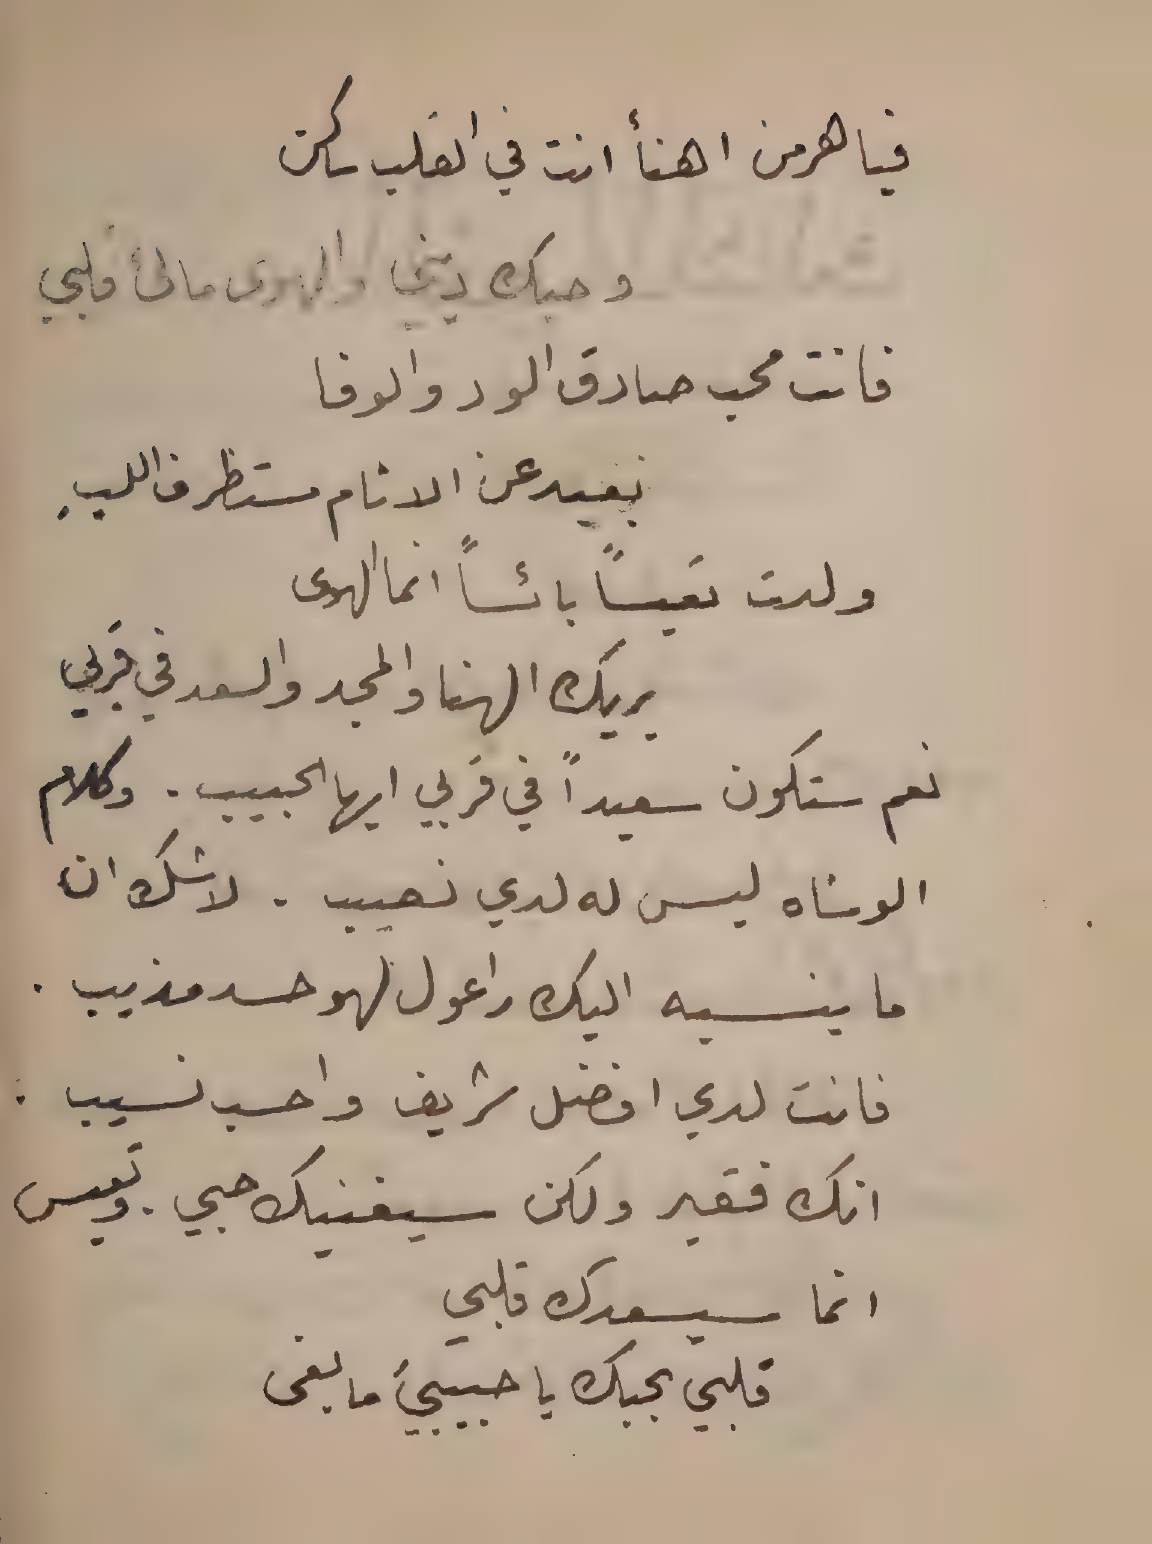 فيا هرمن اهنأ انت في القلب ساكن
وحبك ديني والهوى مالئ قلبي
فانت محب صادق الود والوفا
بعيد عن الاثام مستظرف اللب
ولدت تعيساً بائساً انما الهوى
يريك الهنا والمجد والسعد في قربي
نعم ستكون سعيداً في قربي ايها الحبيب . وكلام
الوشاه ليس له لدي نصيب . لا شك ان
ما ينسبه اليك راعول لهو حسد مذيب .
فانت لدي افضل شريف واحسب نسيب :
انك فقير ولكن سيغنيك حبي . وتعيس
انما سيسعدك قلبي
قلبي بحبك يا حبيبي ما بغى